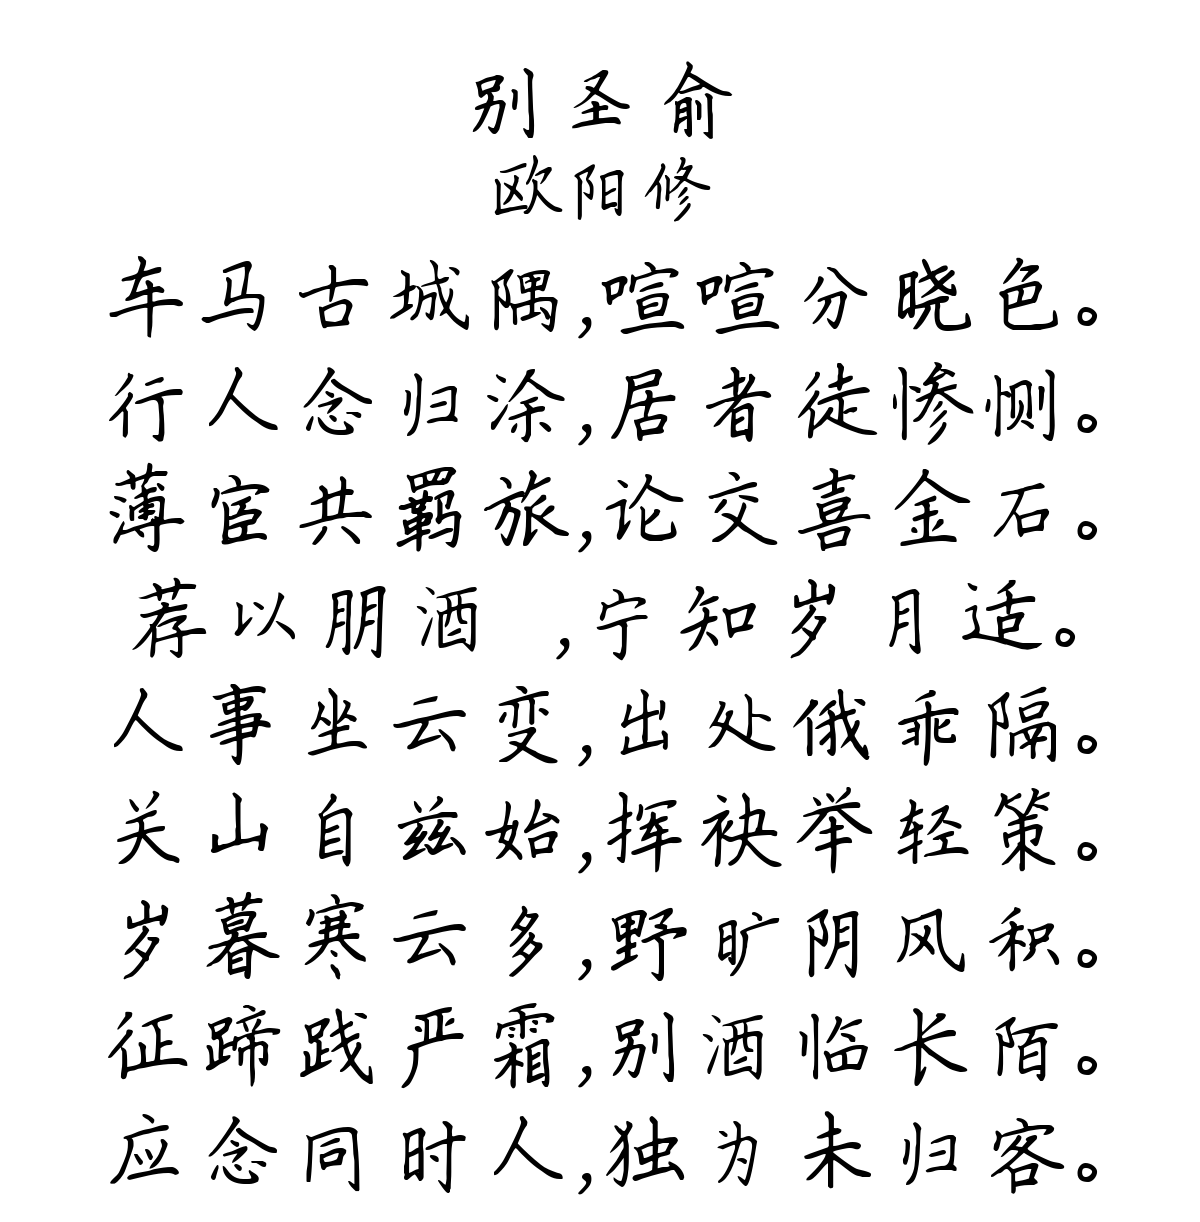 别圣俞
欧阳修
车马古城隅,喧喧分晓色。
行人念归涂,居者徒惨恻。
薄宦共羁旅,论交喜金石。
荐以朋酒 ,宁知岁月适。
人事坐云变,出处俄乖隔。
关山自兹始,挥袂举轻策。
岁暮寒云多,野旷阴风积。
征蹄践严霜,别酒临长陌。
应念同时人,独为未归客。